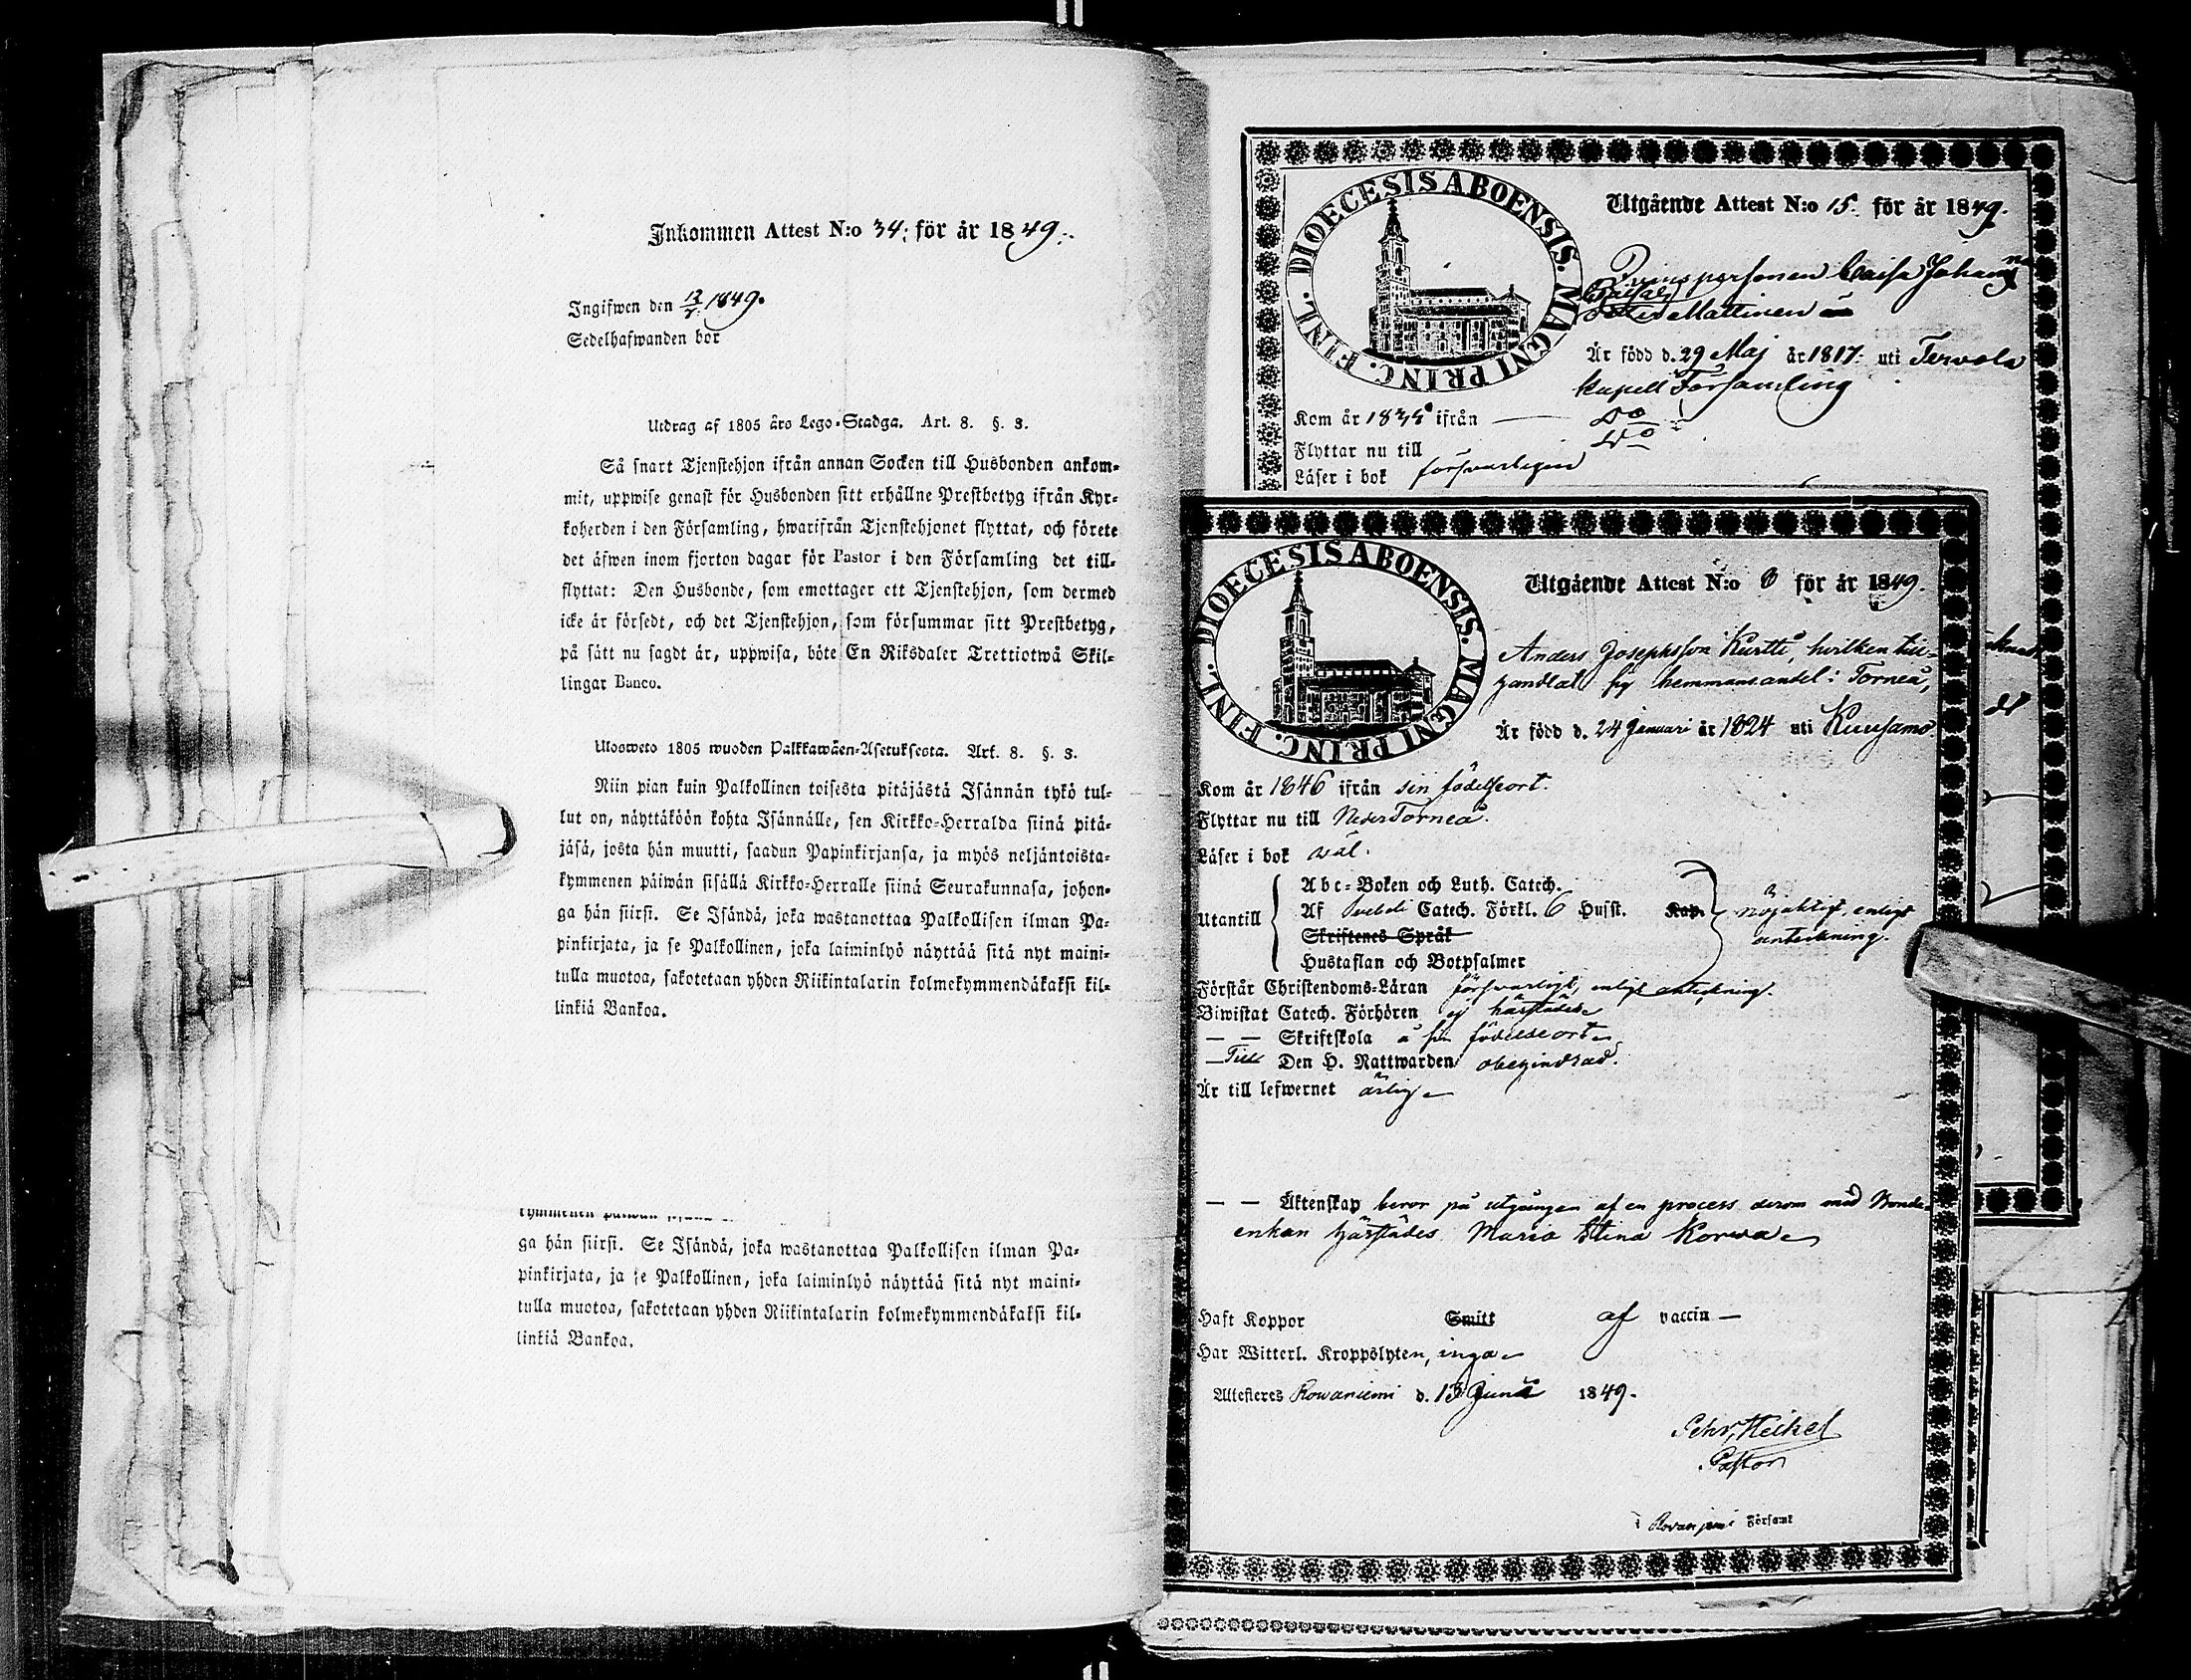 Inkommen Attest N:o 34; för år 1849.
Ingifwen den 12/7 1849.
Sedelhafwanden bor
Utdrag af 1805 års Lego-Stadga. Art. 8. §. 3.
Så snart Tjenstehjon ifrån annan Socken till Husbonden ankom-
mit, uppwise genast för Husbonden sitt erhållne Prestbetyg ifrån Kyr-
koherden i den Församling, hwarifrån Tjenstehjonet flyttat, och förete
det äfwen inom fjorton dagar för Pastor i den Församling det till-
flyttat: Den Husbonde, som emottager ett Tjenstehjon, som dermed
icke är försedt, och det Tjenstehjon, som försummar sitt Prestbetyg,
på sätt nu sagdt är, uppwisa, böte En Riksdaler Trettiotwå Skil-
lingar Banco.
Ulosweto 1805 wuoden Palkkawäen-Asetuksesta. Art. 8. §. 3.
Niin pian kuin Palkollinen toisesta pitäjästä Isännän tykö tul-
lut on, näyttäköön kohta Isännälle, sen Kirkko-Herralda siinä pitä-
jäsä, josta hän muutti, saadun Papinkirjansa, ja myös neljäntoista-
kymmenen päiwän sisällä Kirkko-Herralle siinä Seurakunnasa, johon-
ga hän siirsi. Se Isändä, joka wastanottaa Palkollisen ilman Pa-
pinkirjata, ja se Palkollinen, joka laiminlyö näyttää sitä nyt maini-
tulla muotoa, sakotetaan yhden Riikintalarin kolmekymmendäkaksi kil-
linkiä Bankoa.
ga hän siirsi. Se Isändä, joka wastanottaa Palkollisen ilman Pa-
pinkirjata, ja se Palkollinen, joka laiminlyö näyttää sitä nyt maini-
tulla muotoa, sakotetaan yhden Riikintalarin kolmekymmendäkaksi kil-
linkiä Bankoa.
DIOECESIS ABOENSIS. MAGNI PRINC. FINL.
Utgående Attest N:o 15. för år 1849.
Qvinspersonen Caisa Johanna
Mattinen
Är född d. 29 Maj år 1817: uti Tervola
kapell Församling
Kom år 1835 ifrån — Do
Flyttar nu till Do
Läser i bok försvarligen
DIOECESIS ABOENSIS. MAGNI PRINC. FINL.
Utgående Attest N:o 8 för år 1849.
Anders Josephsson Kurtti, hvilken till-
handlat sig hemmansandel i Torneå,
Är född d. 24 Januari år 1824 uti Kuusamo
Kom år 1846 ifrån sin födelseort.
Flyttar nu till NederTorneå.
Läser i bok väl.
Utantill
Abc-Boken och Luth. Catech.
Af Svebeli Catech. Förkl. 6 Hufst. Kap. nöjaktigt, enligt
Skriftenes Språk anteckning.
Hustaflan och Botpsalmer
Förstår Christendoms-Läran försvarligt, enligt anteckning.
Biwistat Catech. Förhören ej härstädes
— — Skriftskola å sin födelseort
— Till Den H. Nattwarden obehindrad.
Är till lefwernet ärlig
— — Äktenskap beror på utgången af en process derom med Bonde-
enkan härstädes Maria Stina Korva
Haft Koppor Smitt af vaccin —
Har Witterl. Kroppslyten, inga
Attesteras Rowaniemi d. 13 Junii 1849.
Heikel
Pastor
i Rovaniemi Församl